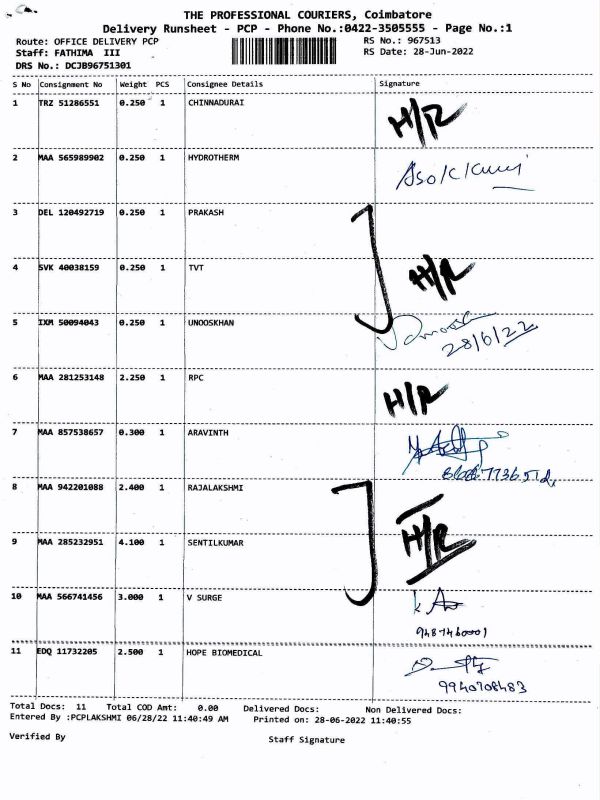 THE PROFESSIONAL COURIERS, Coimbatore
Delivery Runsheet - PCP - Phone No.:0422-3505555 - Page No.:1
Route: OFFICE DELIVERY PCP RS No.: 967513
Staff: FATHIMA III RS Date: 28-Jun-2022
DRS No.: DCJB96751301
S No Consignment No Weight PCS Consignee Details Signature
1 TRZ 51286551 0.250 1 CHINNADURAI H/R
2 MAA 565989902 0.250 1 HYDROTHERM
3 DEL 120492719 0.250 1 PRAKASH
4 SVK 40038159 0.250 1 TVT H/R
5 IXM 50094043 0.250 1 UNOOSKHAN
28/6/22
6 MAA 281253148 2.250 1 RPC H/R
7 MAA 857538657 0.300 1 ARAVINTH
8 MAA 942201088 2.400 1 RAJALAKSHMI
9 MAA 285232951 4.100 1 SENTILKUMAR H/R
10 MAA 566741456 3.000 1 V SURGE
9487460001
11 EDQ 11732205 2.500 1 HOPE BIOMEDICAL
9940708483
Total Docs: 11 Total COD Amt: 0.00 Delivered Docs: Non Delivered Docs:
Entered By :PCPLAKSHMI 06/28/22 11:40:49 AM Printed on: 28-06-2022 11:40:55
Verified By Staff Signature